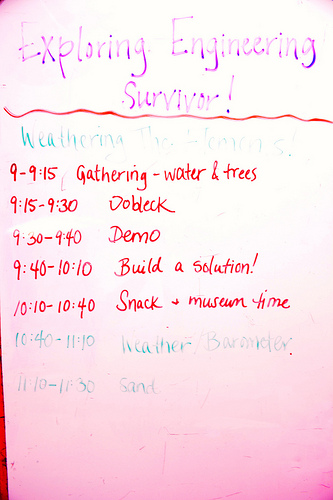 Exploring Engineering
Survivor!
Weathering The Elements!
9-9:15 Gathering - water & trees
9:15-9:30 Oobleck
9:30-9:40 Demo
9:40-10:10 Build a solution!
10:10-10:40 Snack + museum time
10:40-11:10 Weather/Barometer
11:10-11:30 Sand